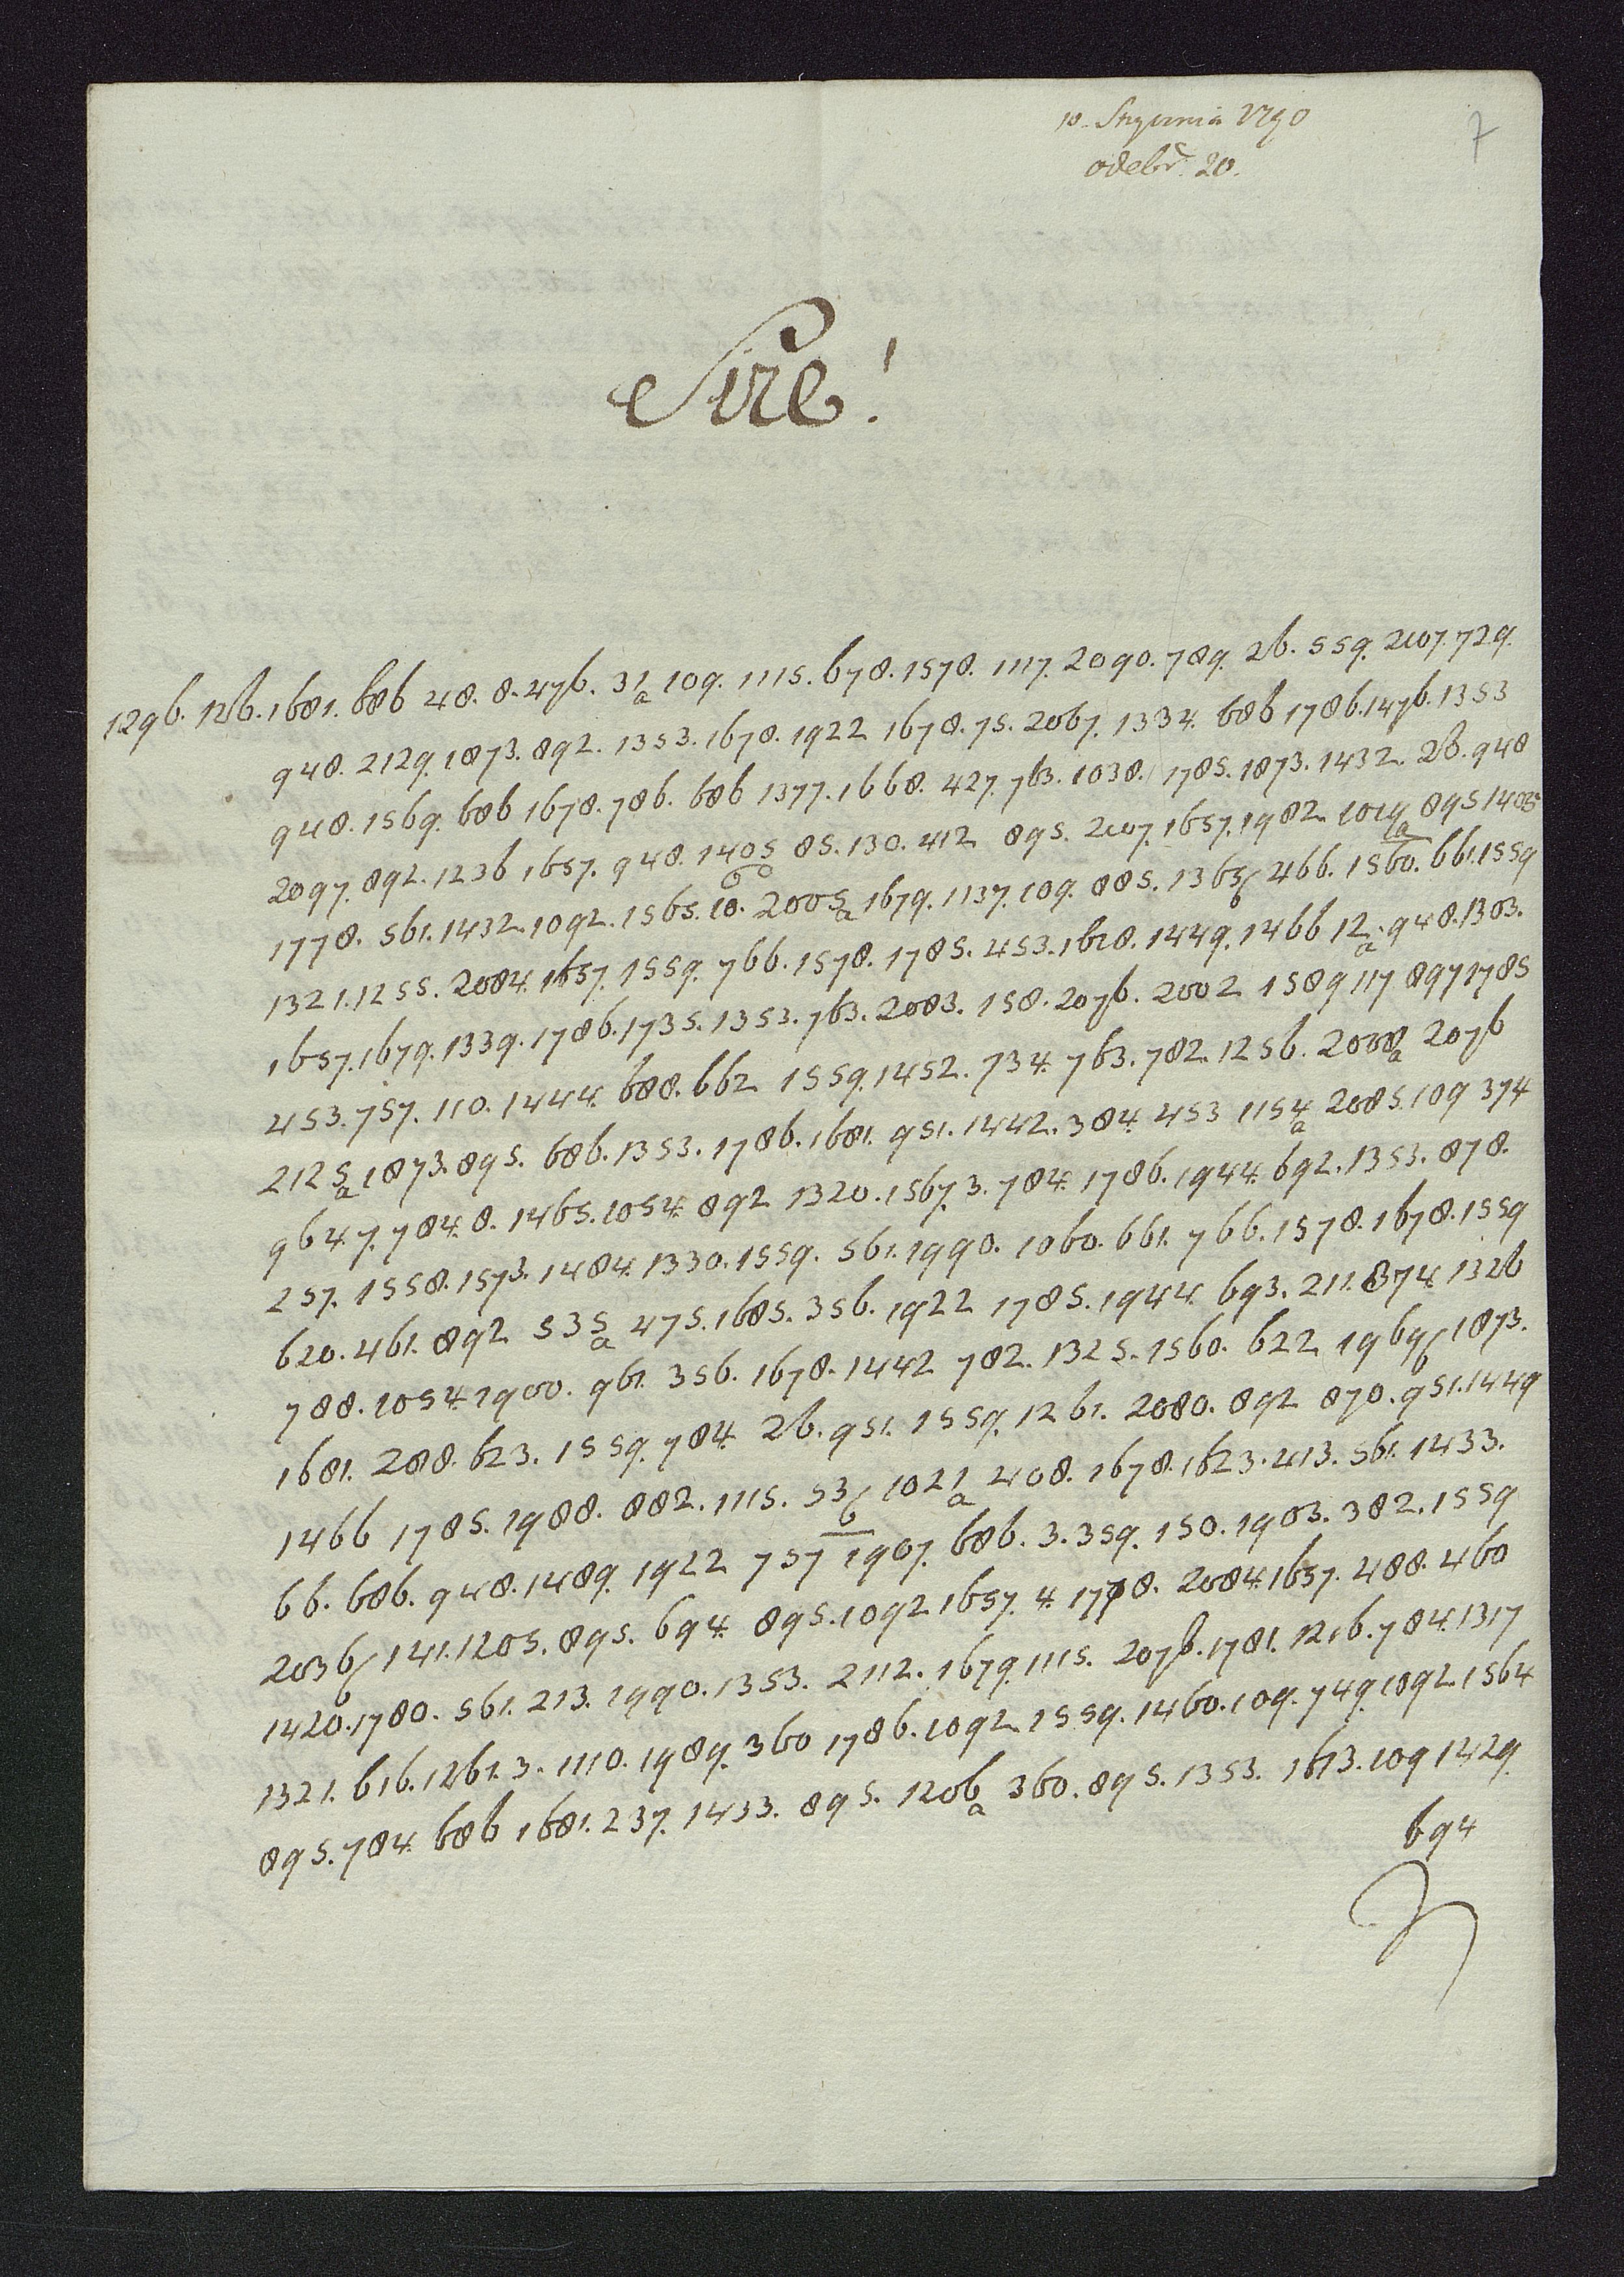 10. Stycznia 1790
odebr. 20.
7
Sire!
1296. 126. 1681. 686 48. 8. 476. 31a 109. 1115. 678. 1578. 1117. 2090. 789. 26. 559. 2107. 729.
948. 2129. 1873. 892. 1353. 1678. 1922 1678. 75. 2067. 1334. 686 1786. 1476. 1353
948. 1569. 686 1678. 786. 686 1377. 1668. 427. 763. 1038. 1785. 1873. 1432. 28. 948
2097. 892. 1236 1657. 948. 1405 85. 130. 412 895. 2107. 1657. 1982 1019a 895 1405
1778. 561. 1432. 1092. 1565. 10. 2005a 1679. 1137. 109. 885. 1365b 466. 1560. 661. 1559
1321. 1255. 2084. 1657. 1559. 766. 1578. 1785. 453. 1628. 1449. 1466 12a. 948. 1303.
1657. 1679. 1339. 1786. 1735. 1353. 763. 2083. 158. 2076. 2002 1589 117 897 1785
453. 757. 110. 1444. 688. 662 1559. 1452. 734. 763. 782. 1256. 2008a 2076
2125a 1873. 895. 686. 1353. 1786. 1681. 951. 1442. 384. 453 1154a 2085. 109 374
964. 7. 784. 8. 1465. 1054. 892 1320. 1567. 3. 784. 1786. 1944. 692. 1353. 878.
257. 1558. 1573. 1484. 1330. 1559. 561. 1990. 1060. 661. 766. 1578. 1678. 1559
620. 461. 892 535a 475. 1685. 356. 1922 1785. 1944. 693. 211. 874. 1326
788. 1054. 1900. 961. 356. 1678. 1442 782. 1325. 1560. 622 1969b 1873.
1681. 288. 623. 1559. 784. 26. 951. 1559. 1261. 2080. 892 870. 951. 1449
1466 1785. 1988. 882. 1115. 53b 1021a 408. 1678. 1623. 413. 561. 1433.
66. 686. 948. 1489. 1922 757 1907. 686. 3. 359. 150. 1903. 382. 1559
2036b 141. 1205. 895. 694. 895. 1092 1657. 4. 1778. 2084. 1657. 488. 460
1420. 1780. 561. 213. 1990. 1353. 2112. 1679. 1115. 2076. 1781. 1216. 784. 1317
1321. 616. 1261. 3. 1110. 1989. 360 1786. 1092 1559. 1460. 109. 749. 1892. 1564
895. 784. 686 1681. 237. 1433. 895. 1206a 360. 895. 1353. 1613. 109 1429.
694